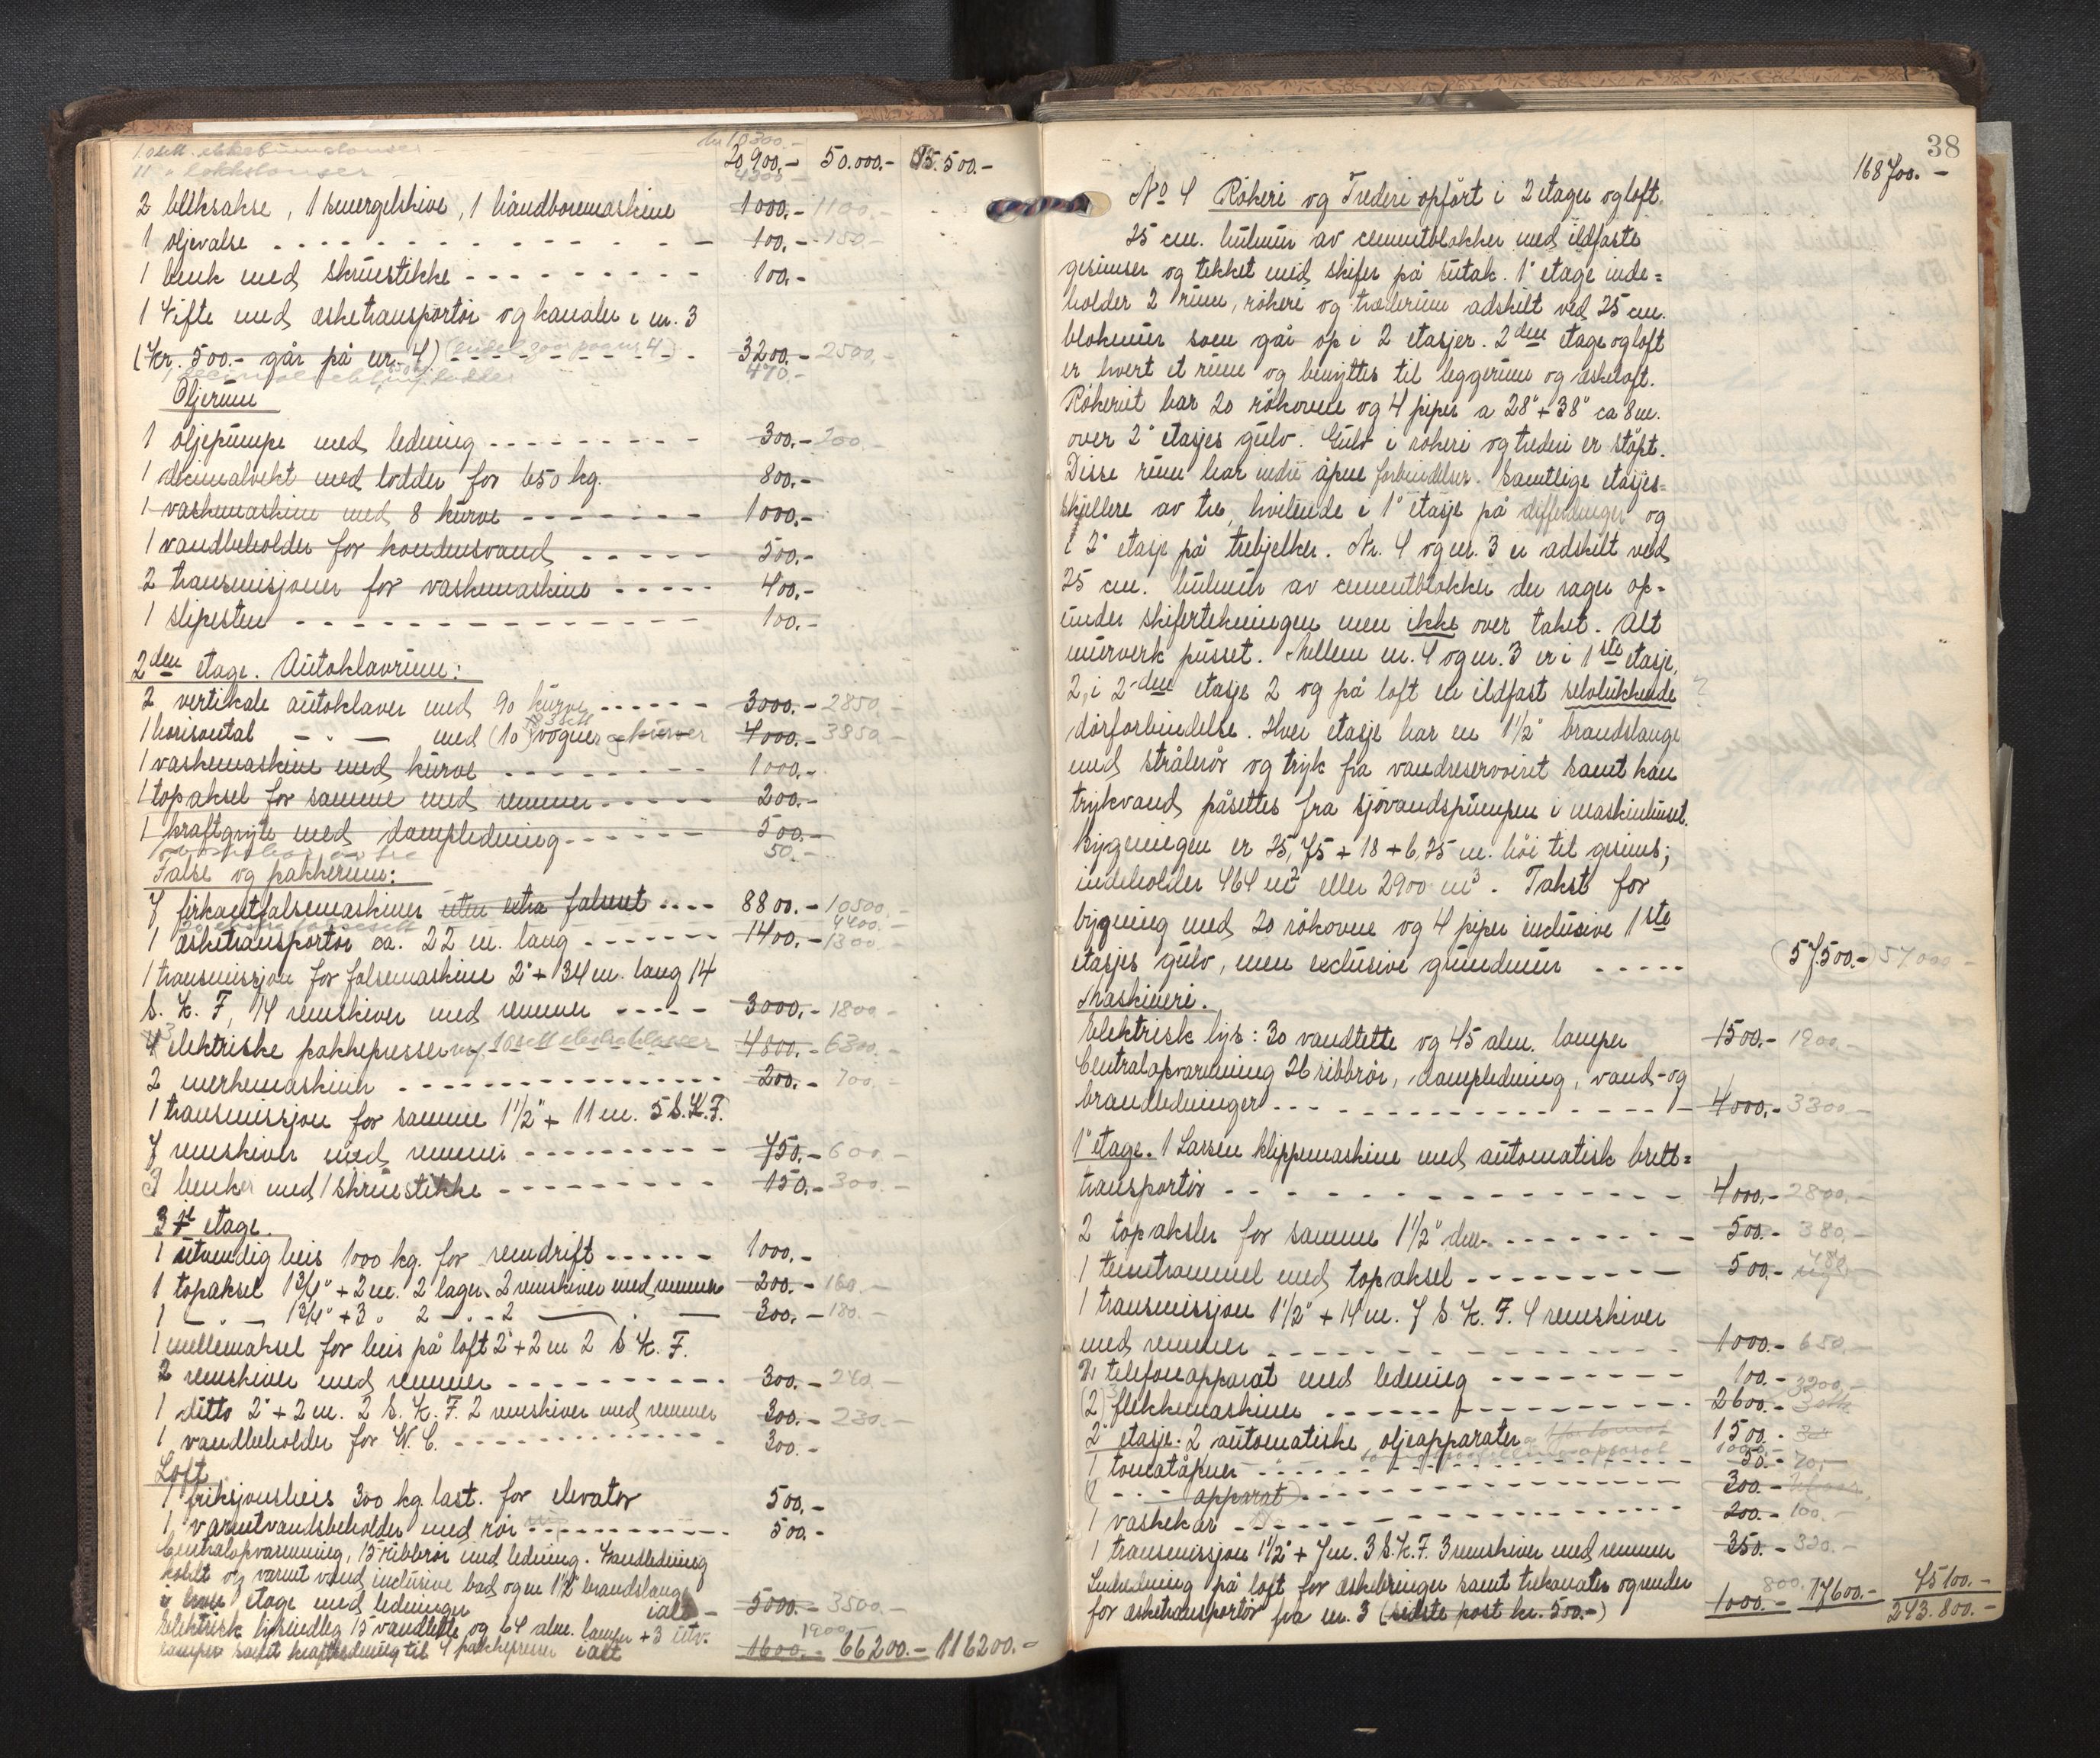 10 sett
11 " lokkstanser
kr 10300.-
20900.- 50.000.- 15.500.-
4300.-
2 bliksakse, 1 smergelskive, 1 håndboremaskine 1000.- 1100.-
1 oljevalse 100.- 150.-
1 benk med skruestikke 100.-
1 Vifte med æsketransportör og kanaler i nr. 3
(Kr. 500.- går på nr. 4) 3200.- 2500.-
470.-
Oljerum
1 oljepumpe med ledning 300.- 200.-
1 decimalvekt med lodder for 650 kg. 800.-
1 vaskemaskine med 8 kurve 1000.-
1 vandbeholder for kondensvand 500.-
2 transmisjoner for vaskemaskine 400.-
1 slipesten 100.-
2den etage. Autoklavrum:
2 vertikale autoklaver med 90 kurve 3000.- 2850.-
1 horisontal - " - med (10) vogner og kurver 4000.- 3850.-
1 vaskemaskine med kurve 1000.-
1 topaksel for samme med remmer 200.-
1 kraftgryte med dampledning 500.-
50.-
False og pakkerum:
7 firkantfalsemaskiner uten extra falseset 8800.- 10500.-
4400.-
1 æsketransportör ca. 22 m. lang 1400.- 1300.-
1 transmissjon for falsemaskine 2" + 34 m. lang 14
S. K. F, 14 remskiver med remmer 3000.- 1800.-
4 elektriske pakkepresser 4800.- 6300.-
2 merkemaskiner 200.- 700.-
1 transmissjon for samme 1 1/2" + 11 m. 5 S.K.F.
7 remskiver med remmer 750.- 600.-
3 benker med 1 skruestikke 150.- 300.-
3je etage.
1 utvendig heis 1000 kg. for remdrift 1000.-
1 topaksel 1 3/4" + 2 m. 2 lager. 2 remskiver med remmer 200.- 160.-
1 - " - 1 3/4" + 3 " 2 - " - 2 - " - 300.- 180.-
1 mellemaksel for heis på loft 2" + 2 m 2 S. K. F.
2 remskiver med remmer 300.- 240.-
1 ditto 2" + 2 m. 2 S. K. F. 2 remskiver med remmer 300.- 230.-
1 vandbeholder for W. C. 300.-
Loft
1 friksjonsheis 300 kg. last. for elevator 500.-
1 varmtvandsbeholder med rör 500.-
Centralopvarmning, 15 ribberör med ledning. Vandledning
koldt og varmt vand inclusive bad og en 1 1/2" brandslange
i hver etage med ledninger ialt - 5000.- 3500.-
Elektrisk lysindlæg 15 vandtette og 64 alm. lamper + 3 utv.
1900.-
lamper samt kraftledning til 4 pakkepresser ialt 1600.- 66200.- 116200.-
38
168700.-
No 4 Rökeri og Trederi opfört i 2 etager og loft.
25 cm. hulmur av cementblokker med ildfaste
gesimser og tekket med skifer på sutak. 1° etage inde=
holder 2 rum, rökeri og trælerum adskilt ved 25 cm.
blokmur som går op i 2 etasjer. 2den etage og loft
er hvert et rum og benyttes til leggerum og æskeloft.
Rökeriet har 20 rökovne og 4 piper a 28" + 38" ca 8 m.
over 2° etasjes gulv. Gulv i rökeri og trederi er stöpt.
Disse rum har indre åpne forbindelser. Samtlige etasjes=
skjellere av tre, hvilende i 1° etasje på differdinger og
i 2° etasje på trebjelker. Nr. 4 og nr. 3 er adskilt ved
25 cm. hulmur av cementblokker der rager op-
under skifertekningen men ikke over taket. Alt
murverk pusset. Mellem nr. 4 og nr. 3 er i 1ste etasje,
2, i 2-den etasje 2 og på loft en ildfast selvlukkende ?
dörforbindelse. Hver etasje har en 1 1/2" brandslange
med strålerör og tryk fra vandreservoiret samt kan
trykvand påsettes fra sjövandspumpen i maskinhuset.
Bygningen er 25,75 + 18 + 6,25 m. höi til gesims;
indeholder 464 m² eller 2900 m³. Takst for
bygning med 20 rökovne og 4 piper inclusive 1ste
etasjes gulv, men exclusive grundmur (57.500.-) 57000-
Maskineri.
Elektrisk lys: 30 vandtette og 45 alm. lamper 1500.- 1900.-
Centralopvarmning 26 ribbrör, dampledning, vand- og
brandledninger 4000.- 3300.-
1° etage. 1 Larsen klippemaskine med automatisk brett=
transportör 4000.- 2800.-
2 topaksler for samme 1 1/2" dm. 500.- 380.-
1 teintrommel med topaksel 500.-
1 transmissjon 1 1/2" + 14 m. 7 S. K. F. 4 remskiver
med remmer 1000.- 650.-
telefonapparat med ledning 100.-
3200.-
(2) flekkemaskiner 2600.-
2° etasje. 2 automatiske oljeapparater 1500.-
1000.-
1 tomatåpner 50.- 20.-
1 - " - apparat 300.-
1 vaskekar 200.- 100.-
1 transmissjon 1 1/2" + 7 m. 3 S.K.F. 3 remskiver med remmer 350.- 320.-
Indredning på loft for æskebringer samt trekanaler og render
for æsketransportör fra nr. 3 (sidste post kr. 500.-) 1000.- 800. 17600.- 75100.-
243.800.-